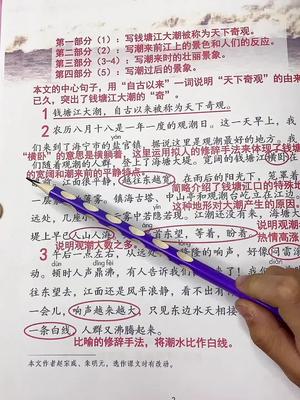 第一部分（1）：写钱塘江大潮被称为天下奇观。
第二部分（2）：写潮来前江上的景色和人们的反应。
第三部分（3-4）：写潮来时的壮丽景象。
第四部分（5）：写潮过后的景象。
本文的中心句子，用“自古以来”一词说明“天下奇观”的由来
已久，突出了钱塘江大潮的“奇”。
1 钱塘江大潮，自古以来被称为天下奇观。
2 农历八月十八是一年一度的观潮日。这一天早上，我
们来到了海宁市的盐官镇，据说这里是观潮最好的地方。我
“横卧”的意思是横躺着，这里运用拟人的修辞手法来体现了钱塘
们随着观潮的人群，登上了海塘大堤。宽阔的钱塘江横卧在
的宽阔和潮来前的平静特点。
江面很平静，越往东越宽，在雨后的阳光下，笼罩着
简略介绍了钱塘江口的特殊地
薄雾。镇海古塔、中山亭和观潮台屹立在江边。
这种地形对大潮产生的原因。
远处，几座小山在云雾中若隐若现。江潮还没有来，海塘大
堤上早已人山人海。大家昂首东望，等着，盼着。
说明观潮人数之多。
热情高涨
3 午后一点左右，从远处传来隆隆的响声，好像闷雷滚
dùn
dǐng fèi
动。顿时人声鼎沸，有人告诉我们，潮来了！我们
往东望去，江面还是风平浪静，看不出有
一会儿，响声越来越大，只见东边水天相接
一条白线，人群又沸腾起来。
比喻的修辞手法，将潮水比作白线。
本文作者赵宗成、朱明元，选作课文时有改动。
2